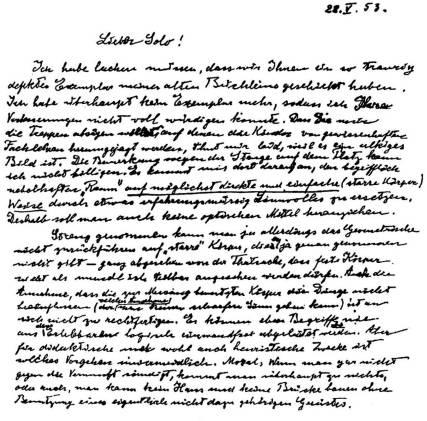 28. V. 53.
Lieber Solo!
Ich habe lachen müssen, dass wir Ihnen ein so traurig
defektes Exemplar meines alten Büchleins geschickt haben.
Ich habe überhaupt kein Exemplar mehr, sodass ich
nicht voll würdigen konnte. Dass Sie
die Treppen auf denen die Kinder von gewissenhaften
Fachlehrern werden, thut mir leid, weil es ein
Bild ist. Die Bemerkung wegen der Stange auf dem Platz kann
ich nicht billigen. Es kommt mir dort darauf an, den begrifflich
nebelhaften "Raum" auf möglichst direkte und einfache (starre Körper)
Weise durch etwas Sinnvolles zu ersetzen.
Deshalb soll man auch keine optischen Mittel heranziehen.
Streng genommen kann man ja allerdings das Geometrische
nicht zurückführen auf "starre" Körper, die es ja genau genommen
nicht gibt — ganz abgesehen von der Thatsache, dass feste Körper
nicht als unendlich teilbar angesehen werden dürfen. Auch die
Annahme, dass die zur Messung benutzten Körper die Dinge nicht
beeinflussen ist an
sich nicht zu rechtfertigen. Es können eben Begriffe nie
aus logisch einwandfrei abgeleitet werden. Aber
für didaktische und wohl auch heuristische Zwecke ist
solches Vorgehen unvermeidlich. Moral: Wenn man gar nicht
gegen die Vernunft sündigt, kommt man überhaupt zu nichts,
oder auch, man kann kein Haus und keine Brücke bauen ohne
Benutzung eines eigentlich nicht dazu gehörigen Gerüstes.